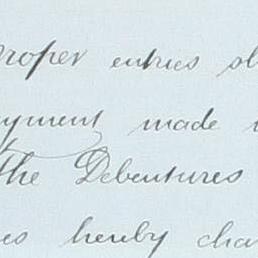 Proper entries sh
ayment made
The Debentures
es hereby cha